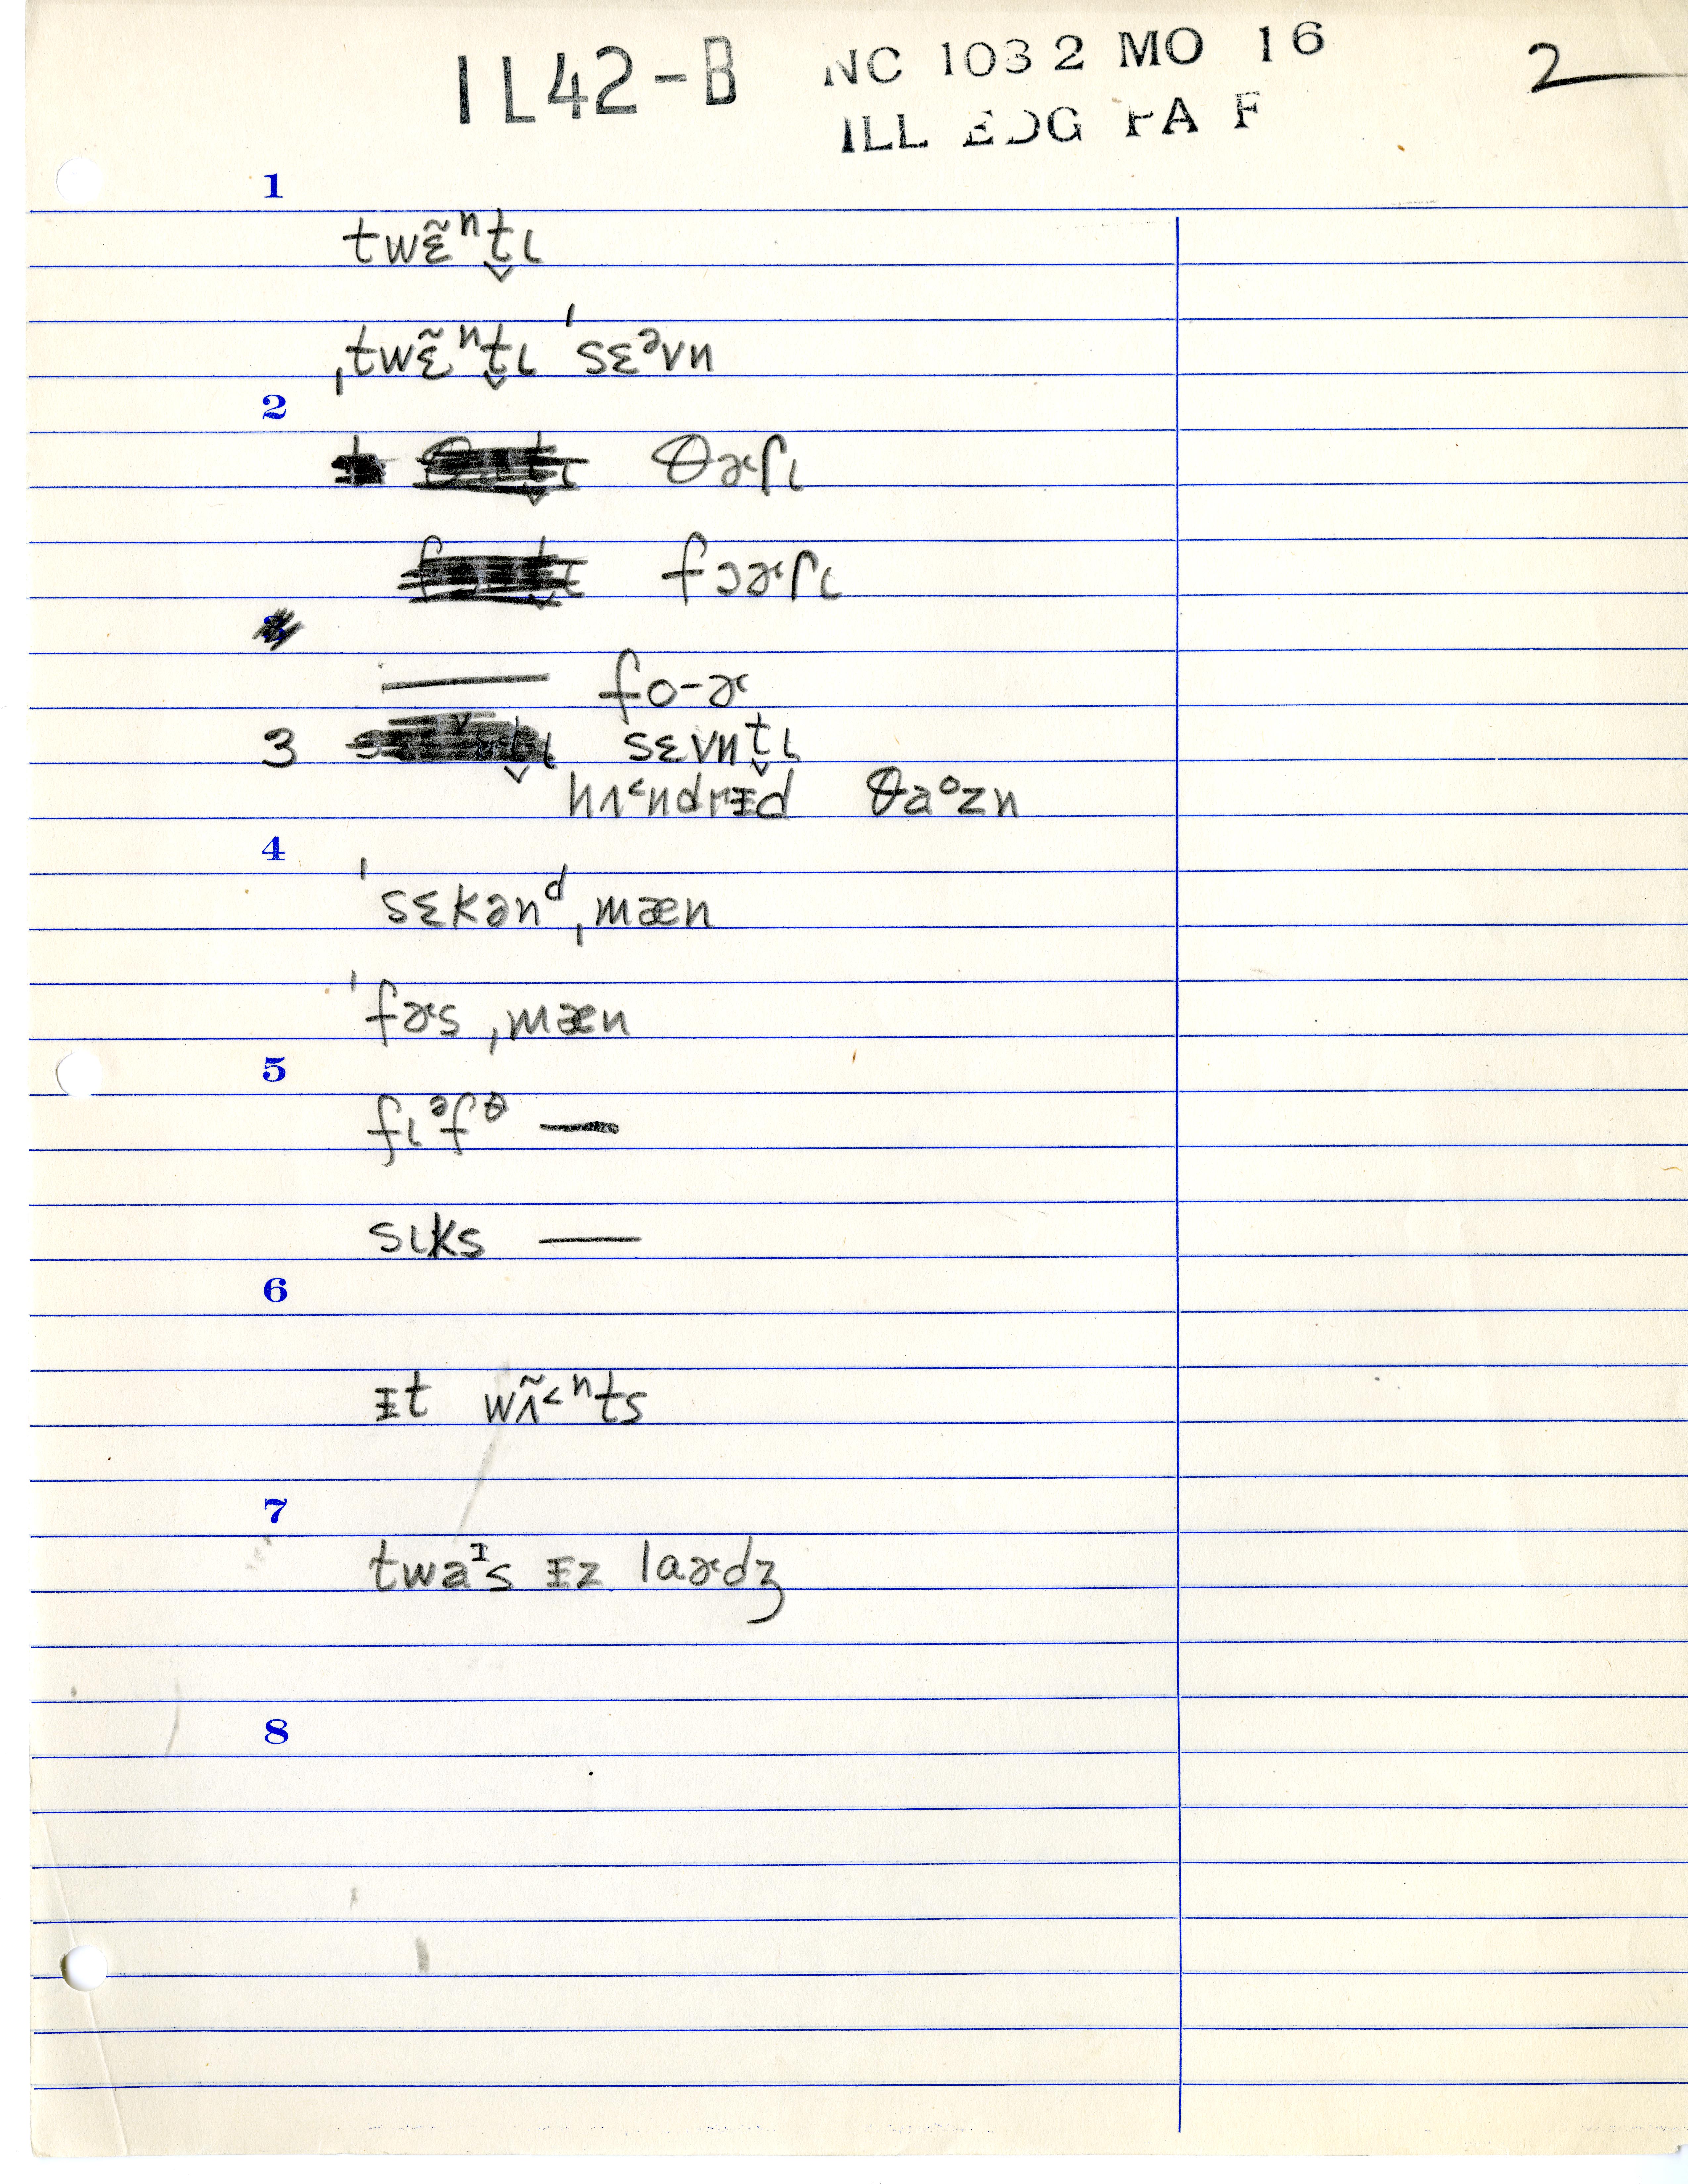 IL42-B NC 1032 MO 16 2
ILL EDG PA F
1
twɛ̃ⁿt̬ɩ
ˌtwɛ̃ⁿt̬ɩ ˈsɛᵊvn
2
θɚɾɩ
fɔɚɾɩ
— fo-ɚ
3 sɛvnt̬ɩ
hʌ˂ndrɪ̵d θaᵒzn
4
ˈsɛkənᵈˌmæn
ˈfɚs ˌmæn
5
fɩᵊfᶿ —
sɩks —
6
ɪ̵t wʌ̃˂ⁿts
7
twaᶦs ɪ̵z laɚdʒ
8